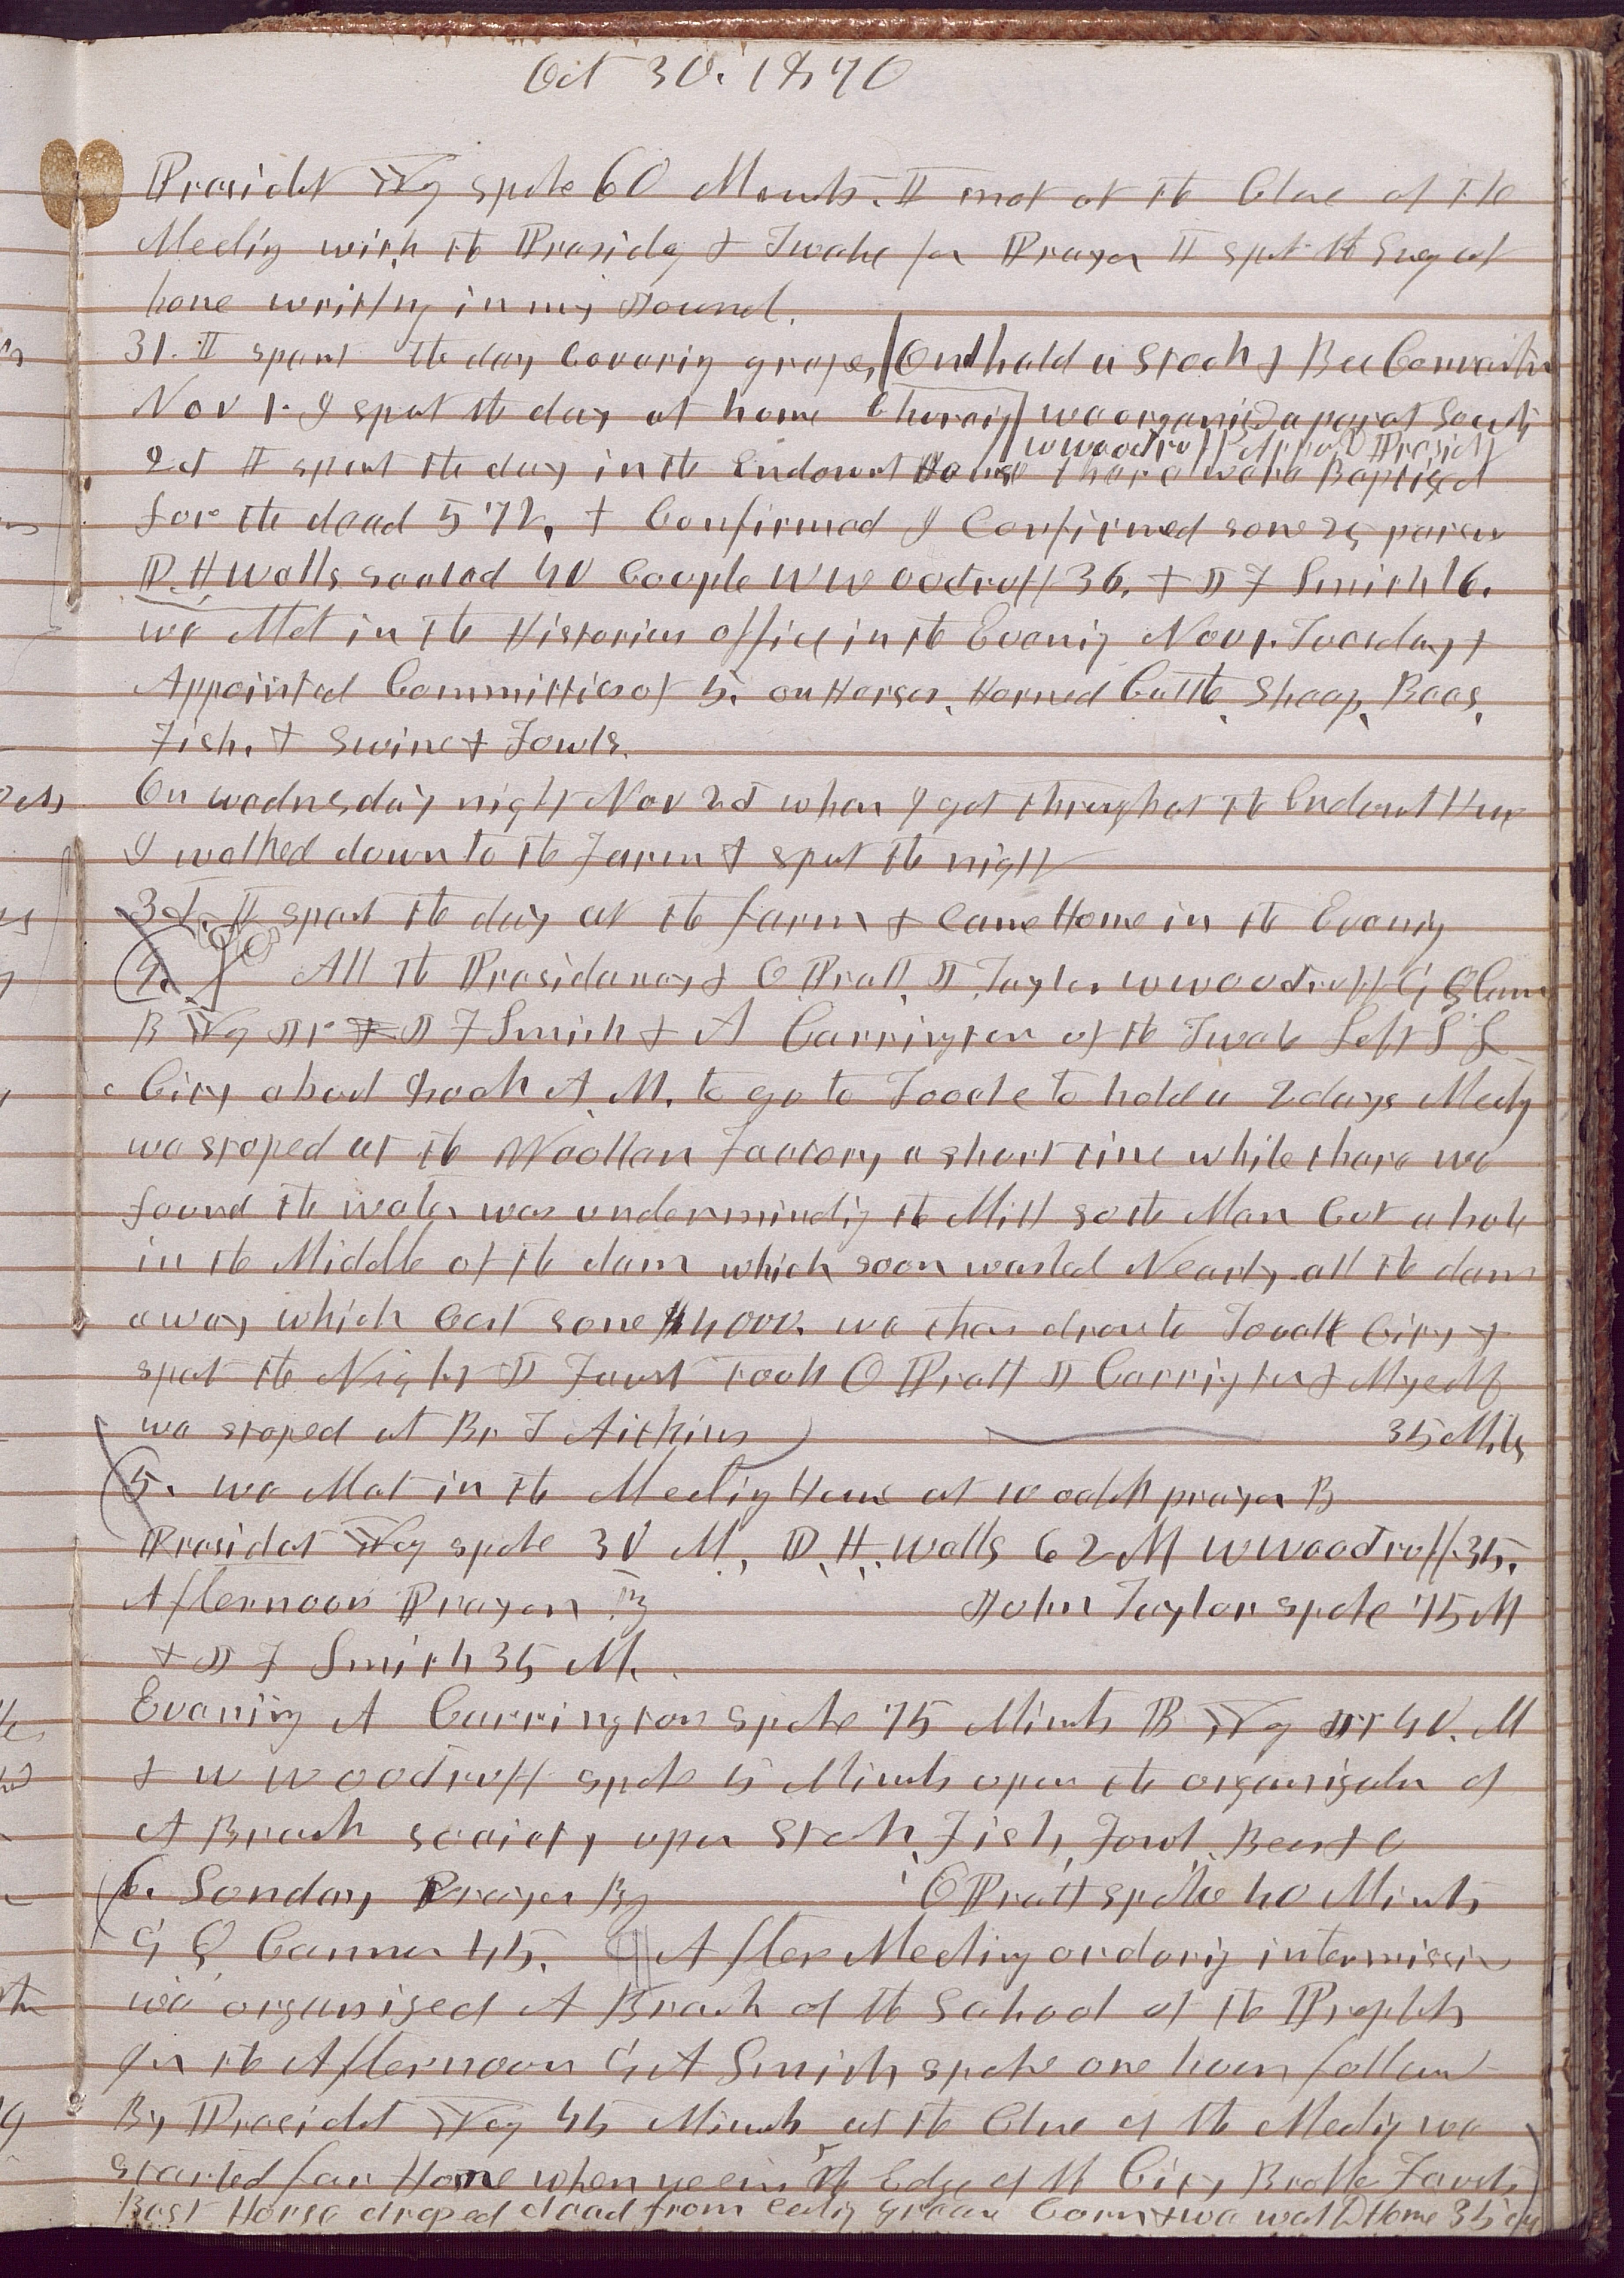 Oct 30. 1870
Presidet Yg spoke 60 Minuts. I met at the Close of the
Meetig with the Presidcy & Twelve for Prayer I spet the Eveg at
home writing in my Journal.
31. I spent the day Covering grapes, And held a Stock & Bee Convention
Nov 1. I spet the day at home Choreing we organized a perat Socity
W Woodruff Appointed Presidt
2d I spent the day in the Endowmt House thare ware Baptized
for the dead 572, & Confirmed I Confirmed some 25 persn
D. H Wells sealed 40 Couple W Woodruff 36. & J F Smith 16.
we Met in the Historian office in the Evenig Nov 1. Tuesday &
Appointed Committies of 5. on Horses, Horned Cattle, Sheep, Bees,
Fish. & Swine & Fowls.
On wednesday night Nov 2d when I got through at the Endowmt House
I walked down to the Farm & spet the night
3d. I spent the day at the farm & came Home in the Evenig
4. All the Presidency & O Pratt J Taylor W Woodruff G Q Cann
B Yg Jr J F Smith & A Carrington of the Twelve Left S L
City about 9 oclok A. M. to go to Tooele to hold a 2 days Meetg
we stoped at the Woollen Factory a short time while there we
found the water was underminding the Mill so the Men Cut a hole
in the Middle of the dam which soon washed Nearly all the dam
away which Cost some $4000. we then drove to Tooele City &
spet the Night J Faust took O Pratt A Carrington & Myself
we stoped at Br T Aitkins 35 Mils
5. we Met in the Meetig House at 10 oclok prayer B
Presidet Yg spoke 30 M. D. H. Wells 62 M W Woodruff 35.
Afternoon Prayer By John Taylor spoke 75 M
& J F Smith 35 M.
Evening A Carrington spoke 75 Minuts B Yg Jr 40. M
& W Woodruff spoke 5 Minuts upon the organizatn of
A Branch society upon Stok, Fish, Fowl, Bees & c
6. Sunday Prayer By O Pratt spoke 40 Minuts
G Q Cannon 45. After Meeting or durig intermissin
we organized A Branch of the School of the Prophets
In the Afternoon G A Smith spoke one hour follow
By Presidet Yg 45 Minuts at the Close of the Meetig we
started for Home when we in the Edge of the City Brother Fausts
Best Horse droped dead from eatig green Corn & we